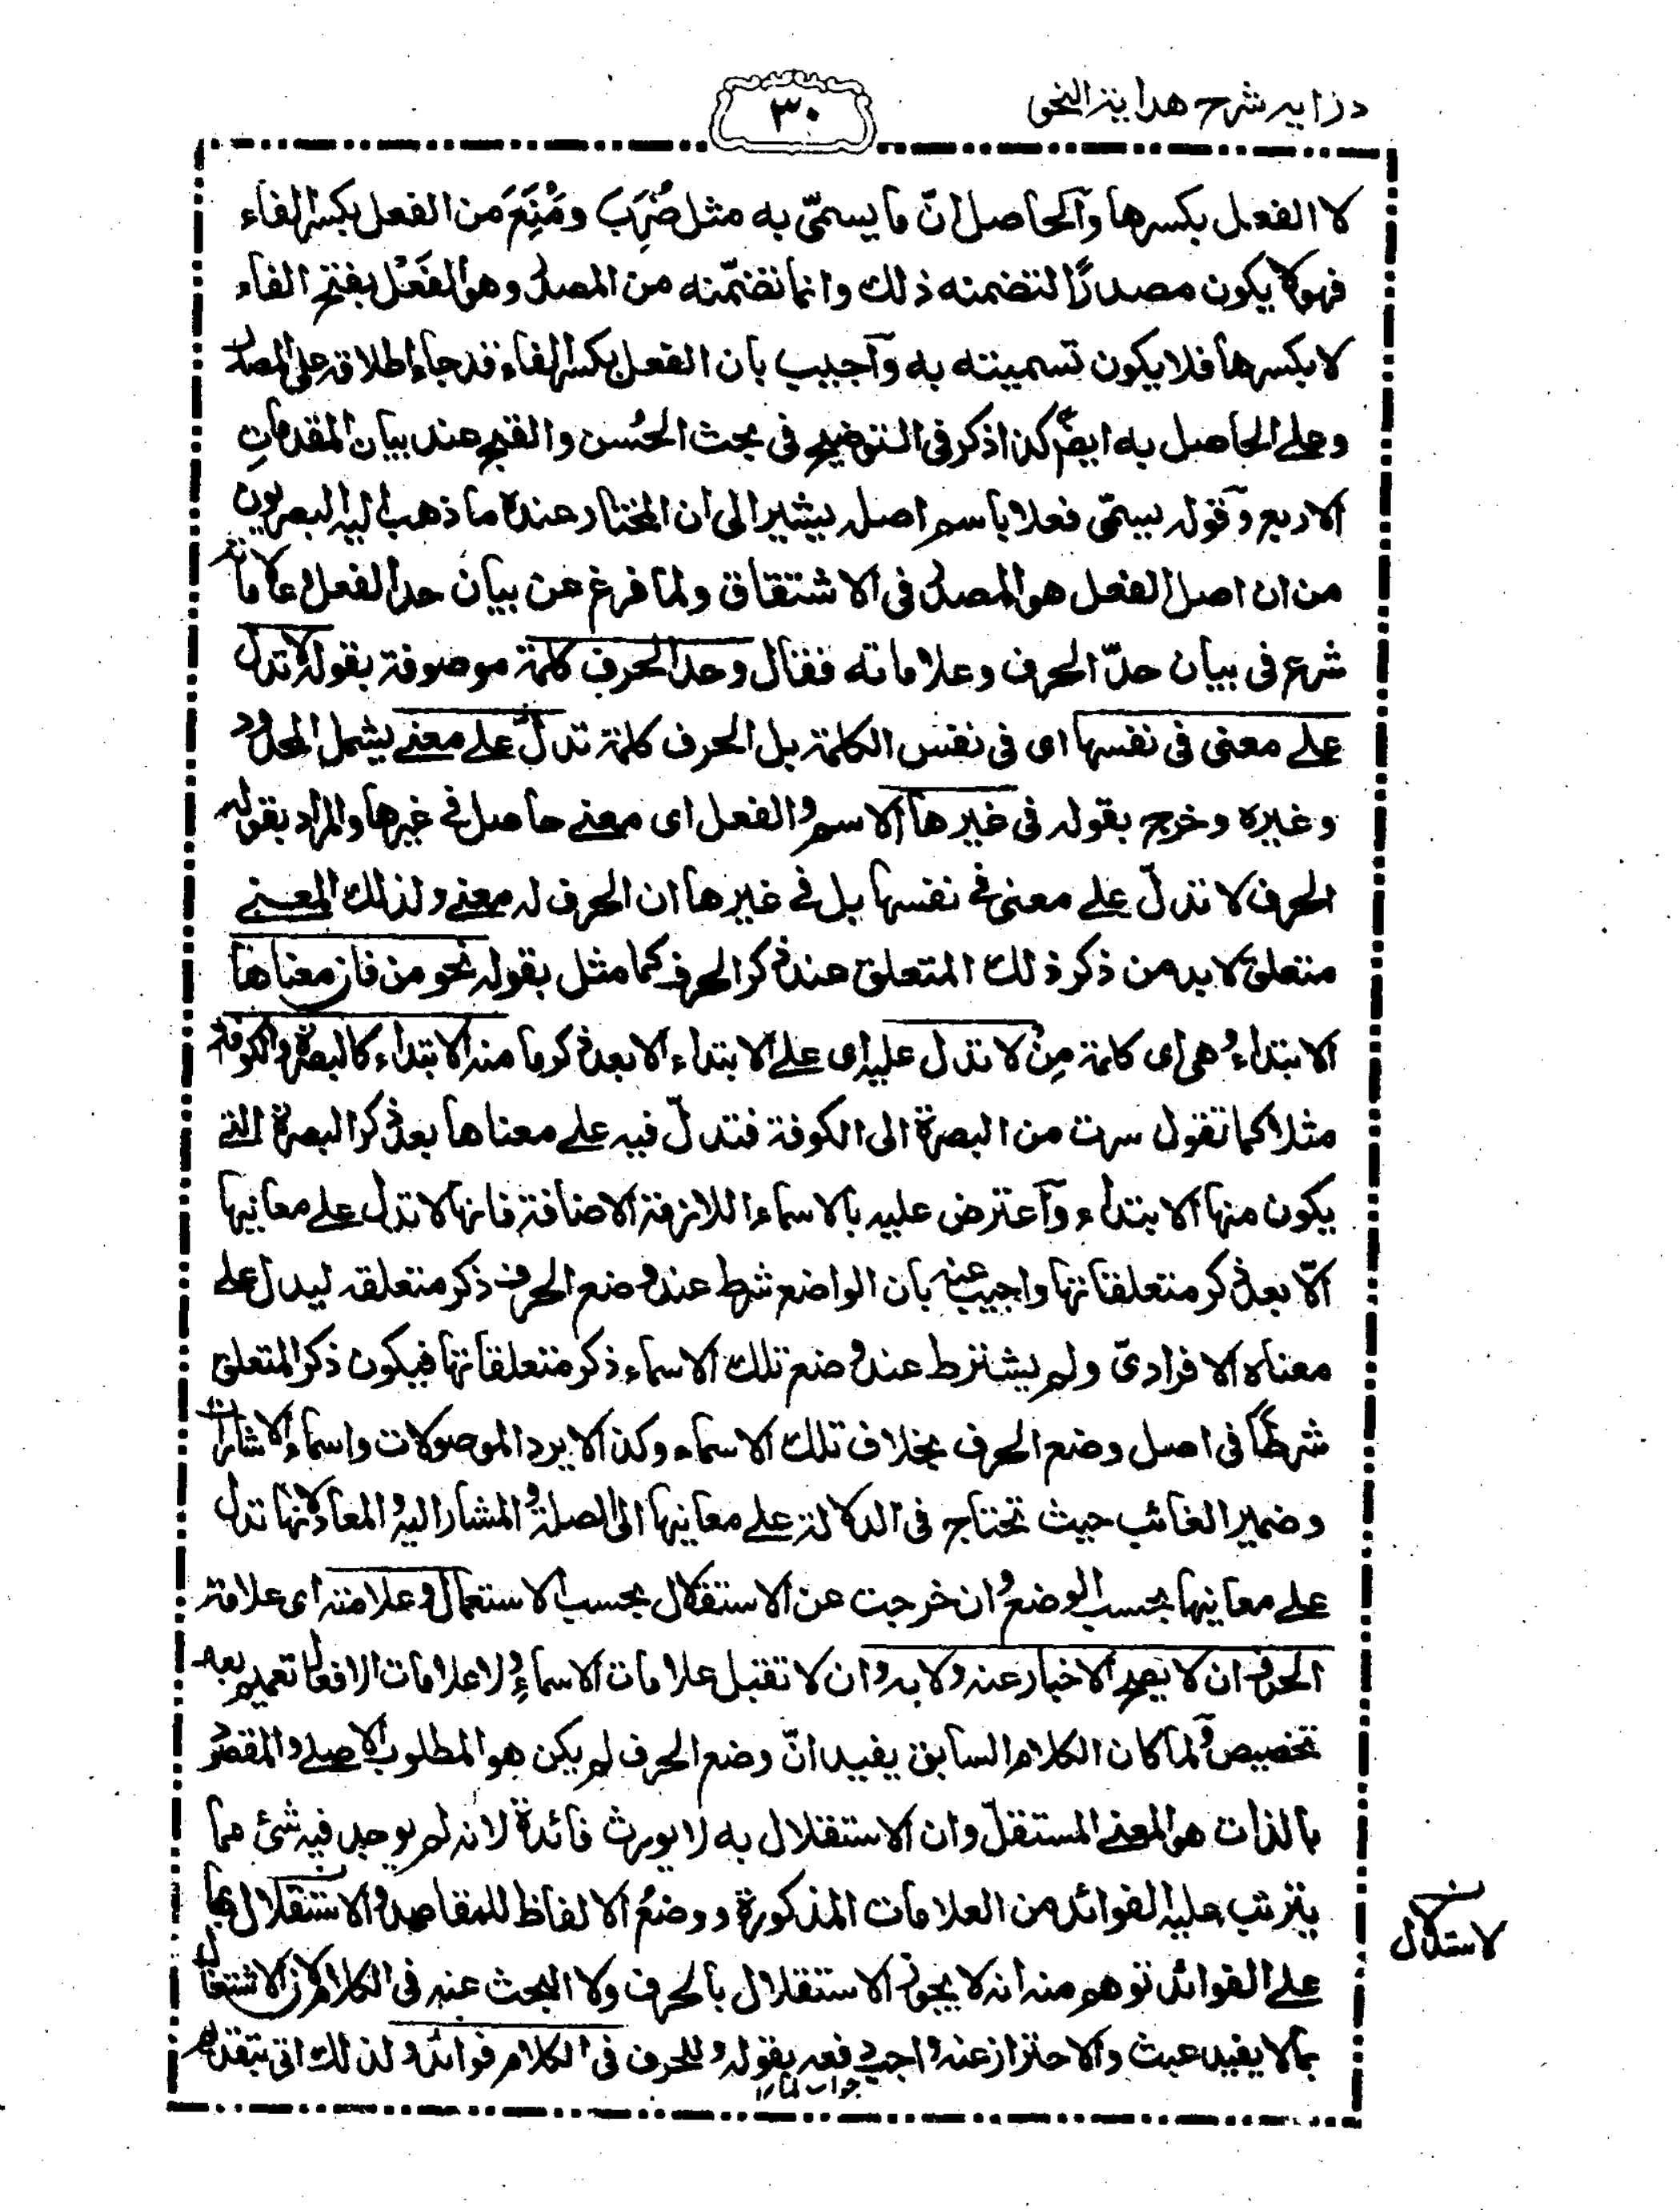 درايه شرح هداية النحو
٣٠
لا الفعل بكسرها وآلحاصل انّ ما يسمّى به مثل ضُرِبَ ومُنِعَ من الفعل بكسر الفاء
فهو لا يكون مصدرًا لتضمنه ذلك وانما تضمّنه من المصدر وهو الفَعْل بفتح الفاء
لا بكسرها فلا يكون تسميته به وآجيب بان الفعل بكسر الفاء قد جاء اطلاقه على المصدر
وعلى الحاصل به ايضًا كذا ذكر فى التوضيح فى بحث الحُسن والقبح عند بيان المقدمات
الاربع وقوله يسمّى فعلا باسم اصله يشير الى ان المختار عنده ما ذهب اليه البصريون
من ان اصل الفعل هو المصدر فى الاشتقاق ولما فرغ عن بيان حد الفعل وعلاماته
شرع فى بيان حدّ الحرف وعلاماته فقال وحد الحرف كلمة موصوفة بقوله لا تدل
على معنى فى نفسها اى فى نفس الكلمة بل الحرف كلمة تدلّ على معنى يشمل المحدود
وغيره وخرج بقوله فى غيرها الاسم والفعل اى معنى حاصل فى غيرها والمراد بقوله
الحرف لا تدلّ على معنى فى نفسها بل فى غيرها ان الحرف له معنى ولذلك المعنى
متعلق لا بد من ذكر ذلك المتعلق عند ذكر الحرف كما مثل بقوله نحو من فان معناها
الابتداء وهى اى كلمة مِنْ لا تدل عليه اى على الابتداء الا بعد ذكر ما منه الابتداء كالبصرة والكوفة
مثلا كما تقول سرت من البصرة الى الكوفة فتدلّ فيه على معناها بعد ذكر البصرة التى
يكون منها الابتداء وآعترض عليه بالاسماء اللازمة الاضافة فانها لا تدل على معانيها
الّا بعد ذكر متعلقاتها واجيب عنه بان الواضع شرط عند وضع الحرف ذكر متعلقه ليدل على
معناه الافرادىّ ولم يشترط عند وضع تلك الاسماء ذكر متعلقاتها فيكون ذكر المتعلق
شرطًا فى اصل وضع الحرف بخلاف تلك الاسماء وكذا لا يرد الموصولات واسماء الاشارات
وضمير الغائب حيث تحتاج فى الدلالة على معانيها الى الصلة والمشار اليه والمعاد لانها تدل
على معانيها بحسب الوضع وان خرجت عن الاستقلال بحسب الاستعمال وعلامته اى علامة
الحرف ان لا يصح الاخبار عنه ولا به وان لا تقبل علامات الاسماء ولا علامات الافعال تعميم بعد
تخصيص ولما كان الكلام السابق يفيد انّ وضع الحرف لم يكن هو المطلوب الاصلى والمقصود
بالذات هو المعنى المستقلّ وان الاستقلال به لا يورث فائدة لانه لم يوجد فيه شئ مما
يترتب عليه الفوائد من العلامات المذكورة ووضعُ الالفاظ للمقاصد والاستقلال بها
على الفوائد توهم منه انه لا يجوز الاستقلال بالحرف ولا البحث عنه فى الكلام لان الاشتغال
بما لا يفيد عبث والاحتراز عنه واجب دفعه بقوله وللحرف فى الكلام فوائد ولذلك اتى بتقديم
جواب لما ١٢
نسخ
لاستدلال